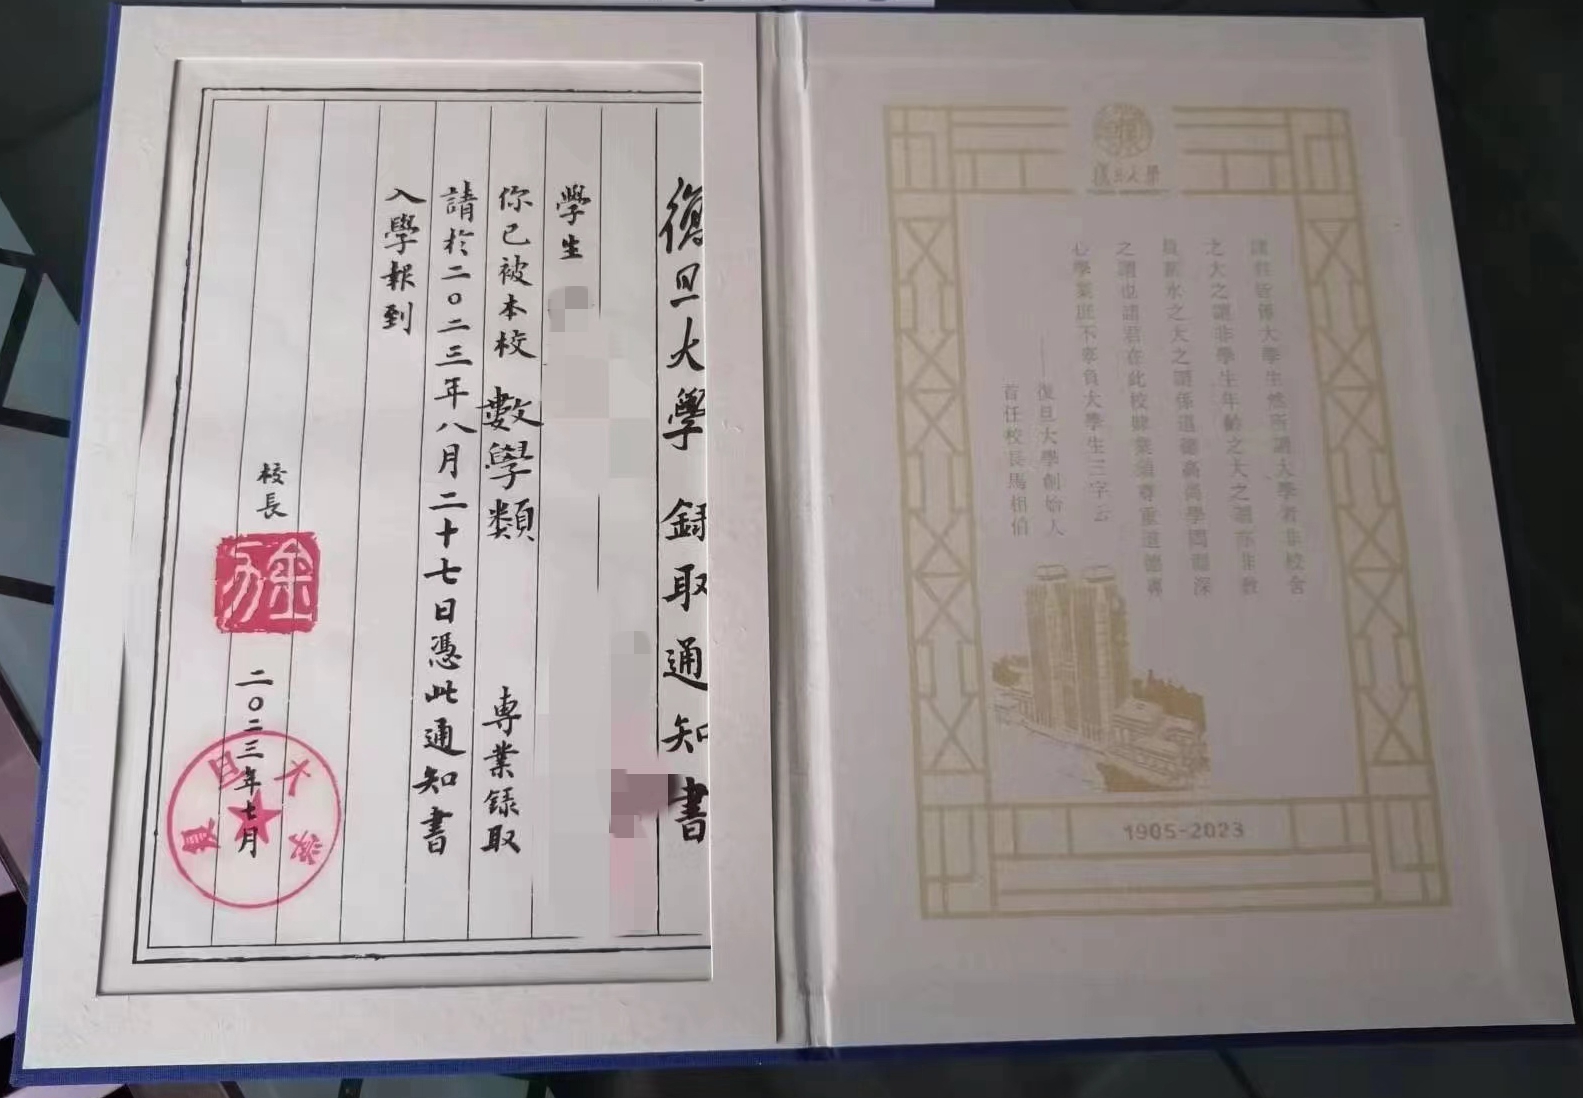 復旦大學錄取通知書
學生
你已被本校數學類專業錄取
請於二〇二三年八月二十七日憑此通知書
入學報到
校長
金力
二〇二三年七月
復旦大學
復旦大學
諸君皆係大學生然所謂大學者非校舍
之大之謂非學生年齡之大之謂亦非教
員薪水之大之謂係道德高尚學問淵深
之謂也諸君在此校肄業須尊重道德專
心學業庶不辜負大學生三字云
——復旦大學創始人
首任校長馬相伯
1905-2023